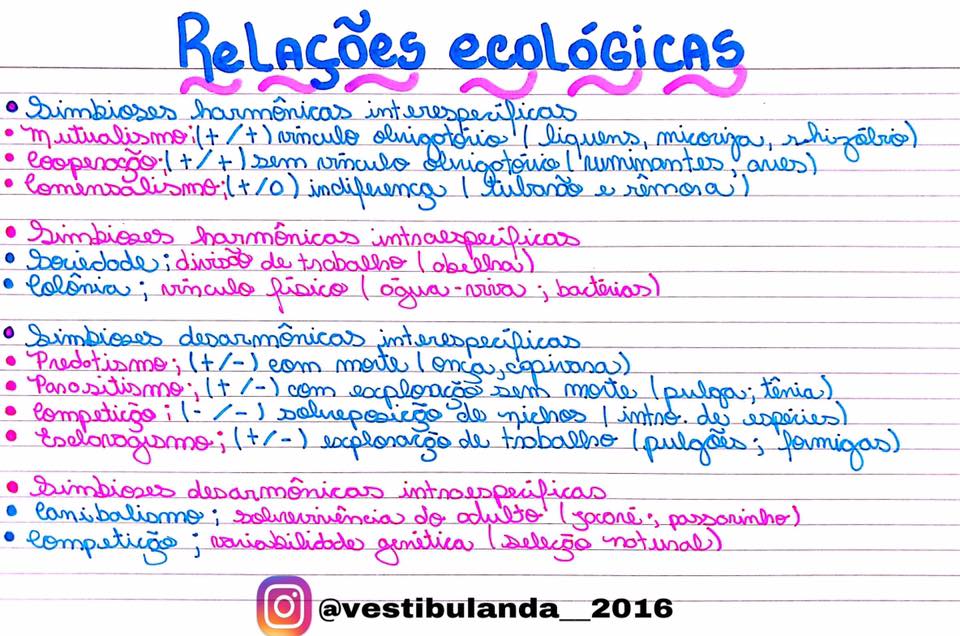 Relações ecológicas
• Simbioses harmônicas interespecíficas
• Mutualismo; (+/+) vínculo obrigatório (liquens, micoriza, rhizóbio)
• Cooperação; (+/+) sem vínculo obrigatório (ruminantes, aves)
• Comensalismo; (+/0) indiferença (tubarão e rêmora)
• Simbioses harmônicas intraespecíficas
• Sociedade; divisão de trabalho (abelha)
• Colônia; vínculo físico (água-viva; bactérias)
• Simbioses desarmônicas interespecíficas
• Predatismo; (+/-) com morte (onça, capivara)
• Parasitismo; (+/-) com exploração sem morte (pulga; tênia)
• Competição; (-/-) sobreposição de nichos (intro. de espécies)
• Esclavagismo; (+/-) exploração de trabalho (pulgões; formigas)
• Simbioses desarmônicas intraespecíficas
• Canibalismo; sobrevivência do adulto (jacaré; passarinho)
• Competição; variabilidade genética (seleção natural)
@vestibulanda__2016